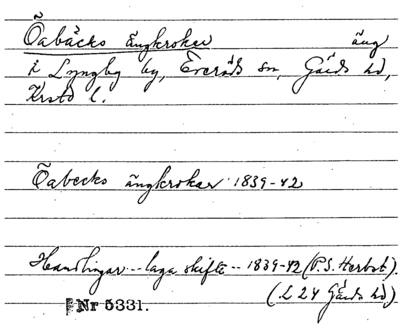 Õabäcks ängkrokar äng
i Lyngby by, Everöds sn, Gärds hd,
Krstd l.
Õabecks ängkrokar 1839-42
Handlingar -- laga skifte -- 1839-42 (P.S. Herbst).
(L 24 Gärds hd)
Nr 5331.